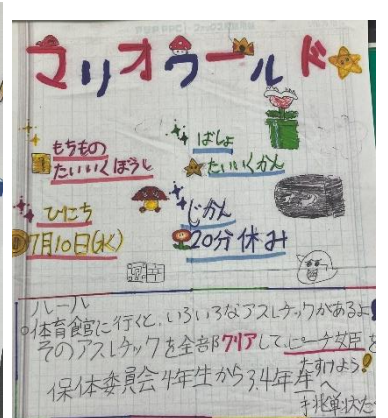 マリオワールド
もちもの
たいいくぼうし
ばしょ
たいいくかん
ひにち
7月10日(水)
じかん
20分休み
ルール
○体育館に行くと、いろいろなアスレチックがあるよ
そのアスレチックを全部クリアして、ピーチ姫を
たすけよう!
保体委員会4年生から3.4年生へ
挑戦状だ